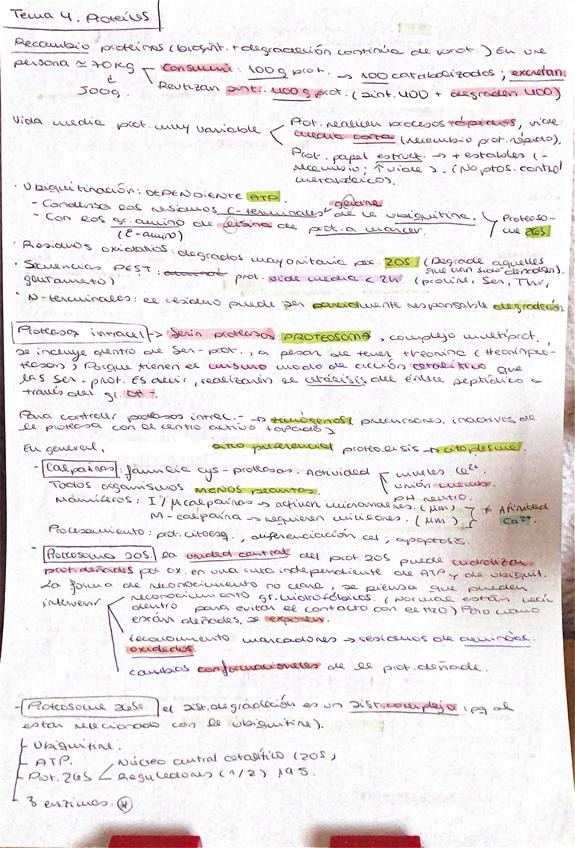 Tema 4. Proteínas
Recambio proteínas (biosint. + degradación continua de prot.) En una
persona ≈ 70kg
Consumir: 100g prot. → 100 catabolizados; excretan.
300g.
Reutilizan sint. 400g prot. (sint. 400 + degraden 400)
Vida media prot. muy variable
Prot. realicen procesos rápidos, vida
media corta (recambio prot. rápido).
Prot. papel estruct. → + estables (-
recambio; ↑ vida). (No ptos. control
metabólicos).
· Ubiquitinación: DEPENDIENTE ATP.
glicina
- Condensa los residuos C-terminales de la ubiquitina.
- Con los gr. amino de lisina de prot. a marcar.
(ε-amino)
Proteaso-
ma 26S
· Residuos oxidados: degrados mayoritaria por 20S (Degrade aquellas
que han sido dañadas).
· Secuencias PEST: prot. vida media < 2h (prolina, Ser, Thr,
glutamato)
· N-terminales: el residuo puede ser parcialmente responsable degradación
Proteasas intracel → Serin proteasas PROTEOSOMA, complejo multiprot.,
se incluye dentro de Ser-prot., a pesar de tener theonina (theoninpro-
teasas) Porque tienen el mismo modo de acción catalítico que
las Ser. prot. Es decir, realizaren la catálisis del enlace peptídico a
través del gr. OH-.
Para controlar proteasas intrac. - → zimógenos (precursores inactivos de
la proteasa con el centro activo tapado)
En general, sitio preferencial proteolisis → citoplasma.
- Calpaínas: familia cys-proteasas. Actividad
niveles Ca2+.
unión memb.
pH neutro.
Todos organismos MENOS plantas.
Mamíferos: I/μcalpaínas → activen micromolares (μm)
M-calpaína → requieren milimolares. (μm)
≠ Afinidad
Ca2+.
Procesamiento: prot. citoesq., diferenciación cel, apoptosis.
- Proteasoma 20S: la unidad central del prot 20S puede hidrolizar
prot. dañadas por ox. en una ruta independiente de ATP y de ubiquit.
La forma de reconocimiento no clara, se piensa que pueden
intervenir
reconocimiento gr. hidrofóbicos. (Normal están hacia
dentro para evitar el contacto con el H2O) Pero como
están dañadas, se exponen
reconocimiento marcadores → residuos de aminoác.
oxidados.
cambios conformacionales de la prot. dañada.
- Proteosoma 26S: el sist. degradación es un sist. complejo (pq al
estar relacionado con la ubiquitina).
- Ubiquitina.
- ATP.
- Prot. 26S
Núcleo central catalítico (20S)
Reguladores (1/2) 19S.
- 3 enzimas.